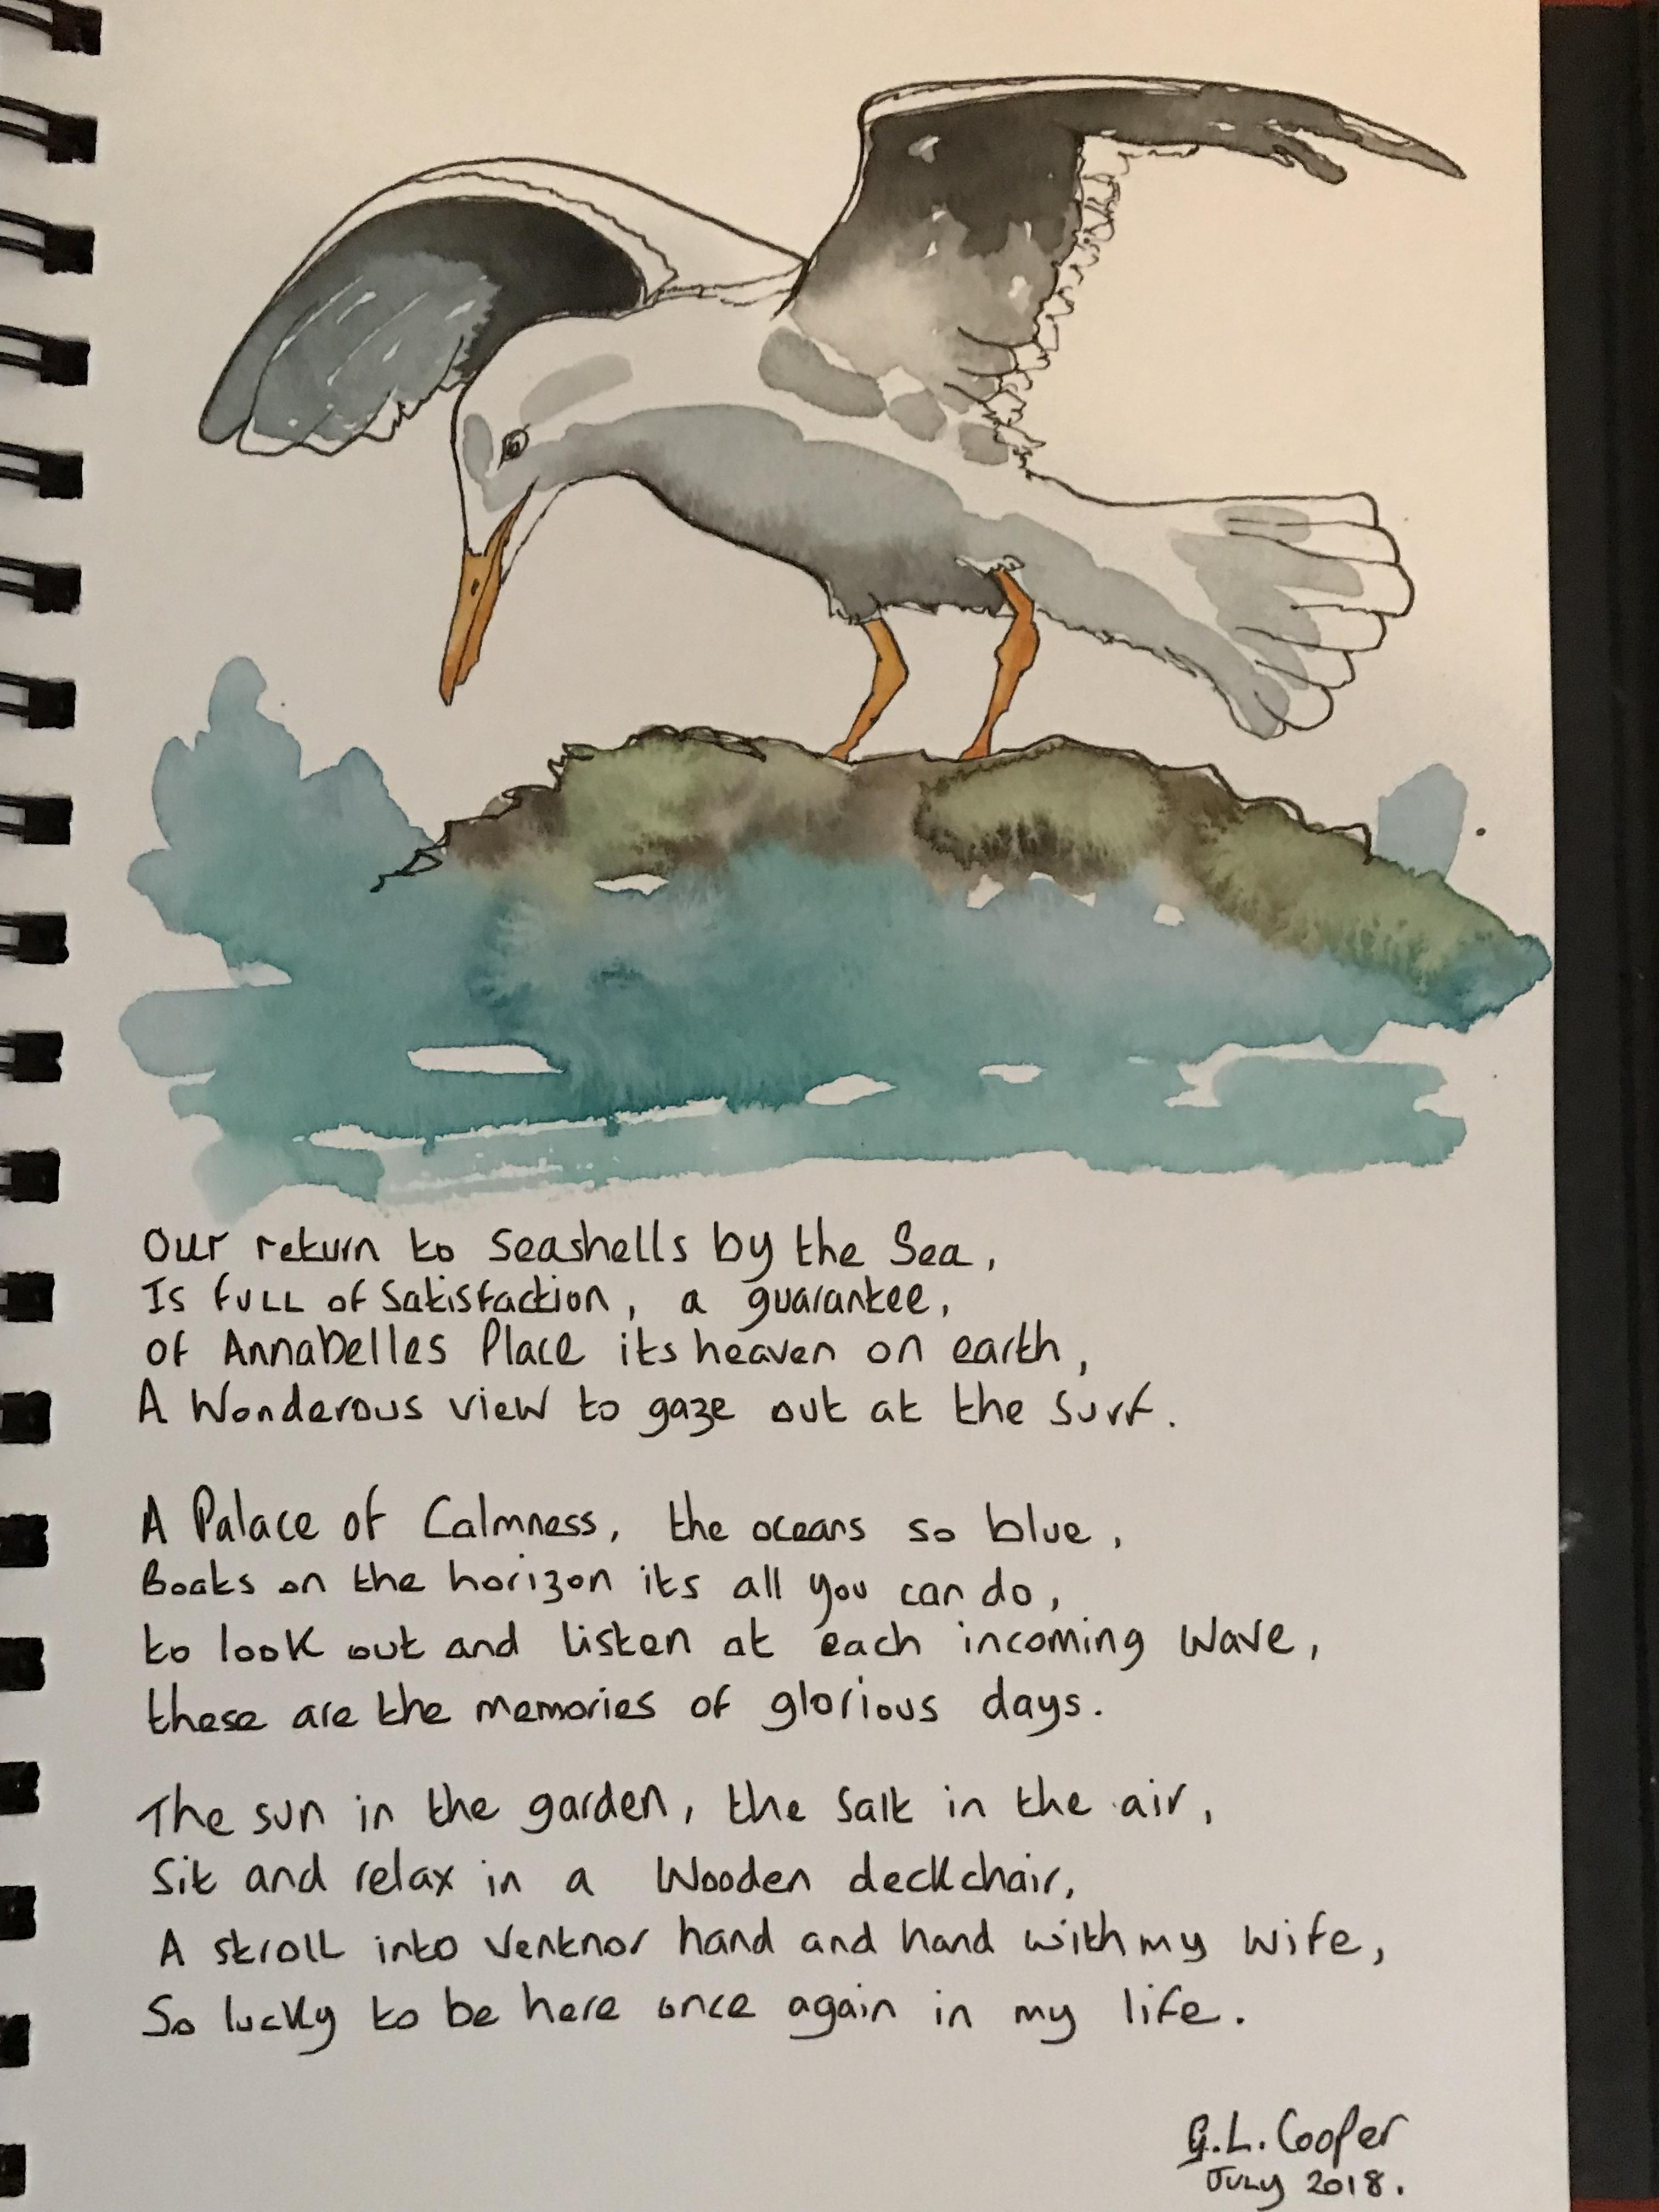 Our return to Seashells by the Sea,
Is full of Satisfaction, a guarantee,
of Annabelles Place its heaven on earth,
A Wonderous view to gaze out at the Surf.
A Palace of Calmness, the oceans so blue,
Boats on the horizon its all you can do,
to look out and listen at each incoming Wave,
these are the memories of glorious days.
The sun in the garden, the Salt in the air,
Sit and relax in a Wooden deckchair,
A stroll into Ventnor hand and hand with my Wife,
So lucky to be here once again in my life.
G.L. Cooper
July 2018.